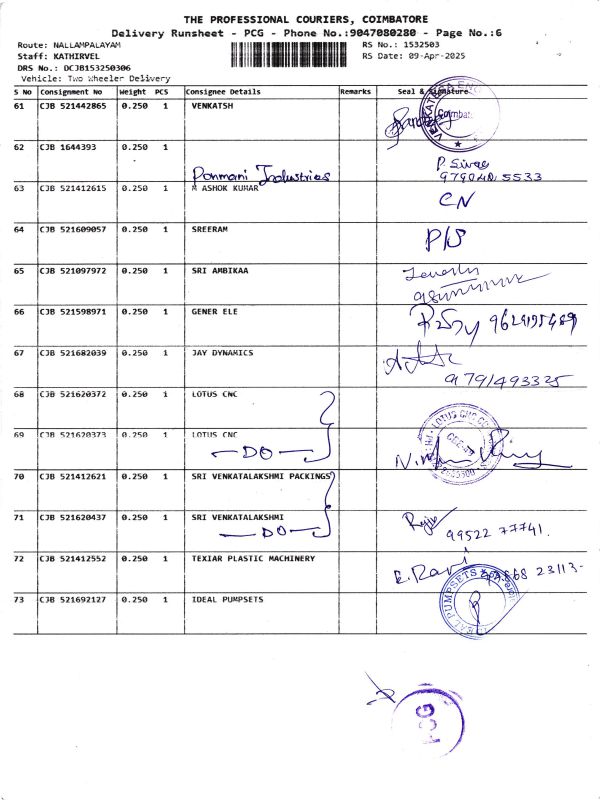 THE PROFESSIONAL COURIERS, COIMBATORE
Delivery Runsheet - PCG - Phone No.:9047080280 - Page No.:6
Route: NALLAMPALAYAM
RS No.: 1532503
Staff: KATHIRVEL
RS Date: 09-Apr-2025
DRS No.: DCJB153250306
Vehicle: Two Wheeler Delivery
S No Consignment No Weight PCS Consignee Details Remarks Seal & Signature
61 CJB 521442865 0.250 1 VENKATSH
62 CJB 1644393 0.250 1
Ponmani Industries
P. Siva
63 CJB 521412615 0.250 1 M ASHOK KUMAR
CN
64 CJB 521609057 0.250 1 SREERAM
P/S
65 CJB 521097972 0.250 1 SRI AMBIKAA
66 CJB 521598971 0.250 1 GENER ELE
67 CJB 521682039 0.250 1 JAY DYNAMICS
9791493325
68 CJB 521620372 0.250 1 LOTUS CNC
69 CJB 521620373 0.250 1 LOTUS CNC
— DO —
LOTUS CNC
70 CJB 521412621 0.250 1 SRI VENKATALAKSHMI PACKINGS
71 CJB 521620437 0.250 1 SRI VENKATALAKSHMI
— DO —
99522 77741.
72 CJB 521412552 0.250 1 TEXIAR PLASTIC MACHINERY
E. Ravi
73 CJB 521692127 0.250 1 IDEAL PUMPSETS
IDEAL PUMPSETS
PCG